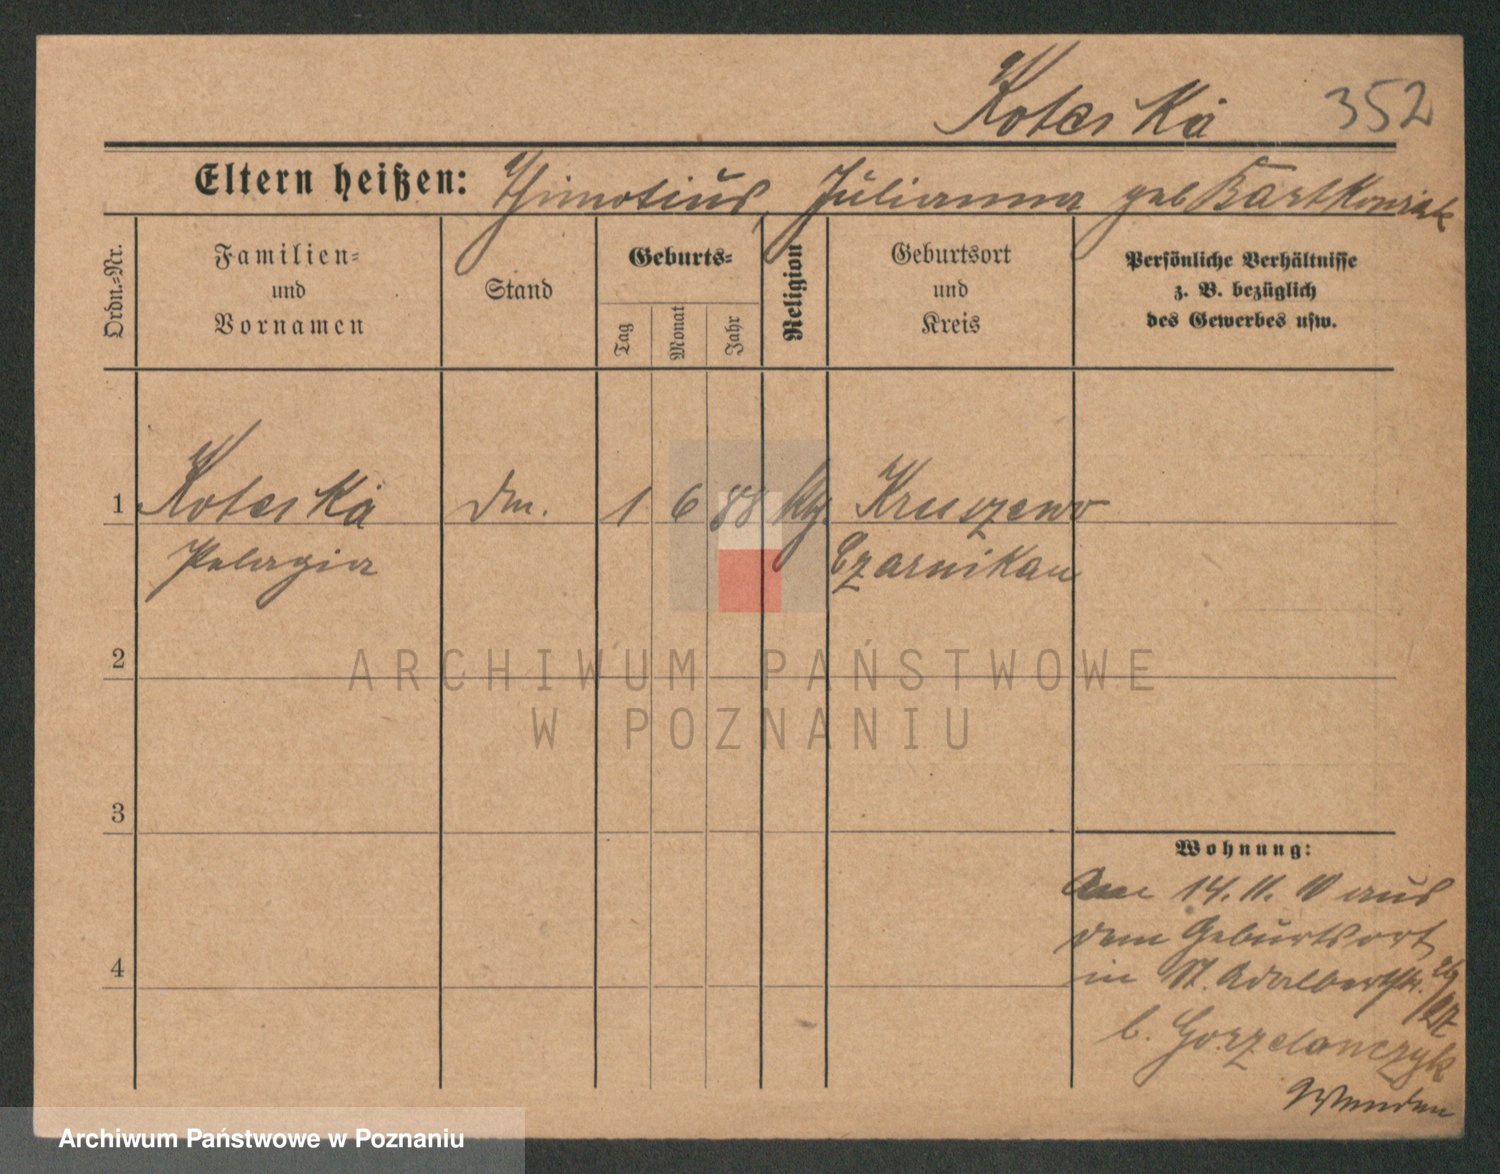 Koteska 352
Eltern heißen: Thimotius, Julianna geb Bartkowiak
Ordn.-Nr.
Familien- und Vornamen
Stand
Geburts-
Tag
Monat
Jahr
Religion
Geburtsort und Kreis
Persönliche Verhältnisse
z. B. bezüglich
des Gewerbes usw.
1 Koteska dm. 1 6 88 kth. Kruszewo
Pelagia Czarnikau
2
ARCHIWUM PAŃSTWOWE
W POZNANIU
3
Wohnung:
14. 11. 10 aus
dem Geburtsort
4
in St. Adalbertstr.
b. Gorzelanczyk
Archiwum Państwowe w Poznaniu